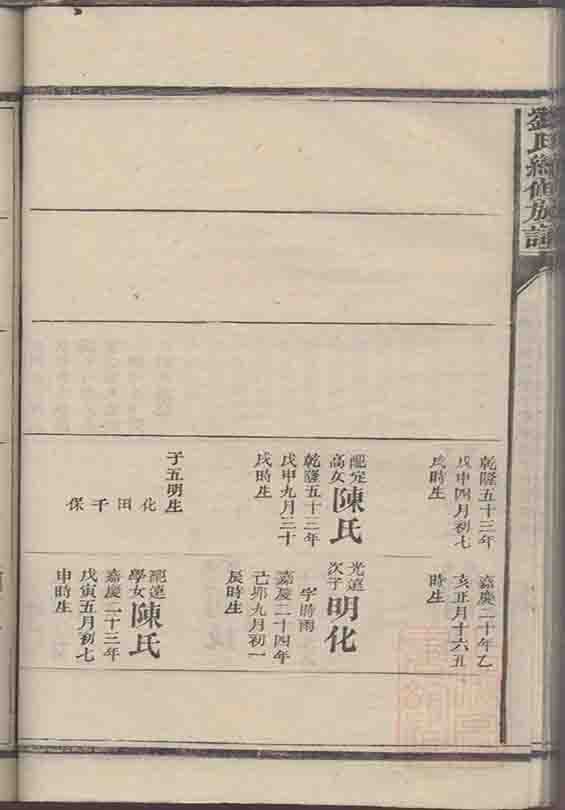 劉氏續修族譜
乾隆五十三年
戊申四月初七
戌時生
配定
高女
陳氏
乾隆五十三年
戊申九月三十
戌時生
子五明生
化
田
千
保
嘉慶二十年乙
亥正月十六丑
時生
光遠
次子
明化
字時雨
嘉慶二十四年
己卯九月初一
辰時生
配逵
學女
陳氏
嘉慶二十三年
戊寅五月初七
申時生